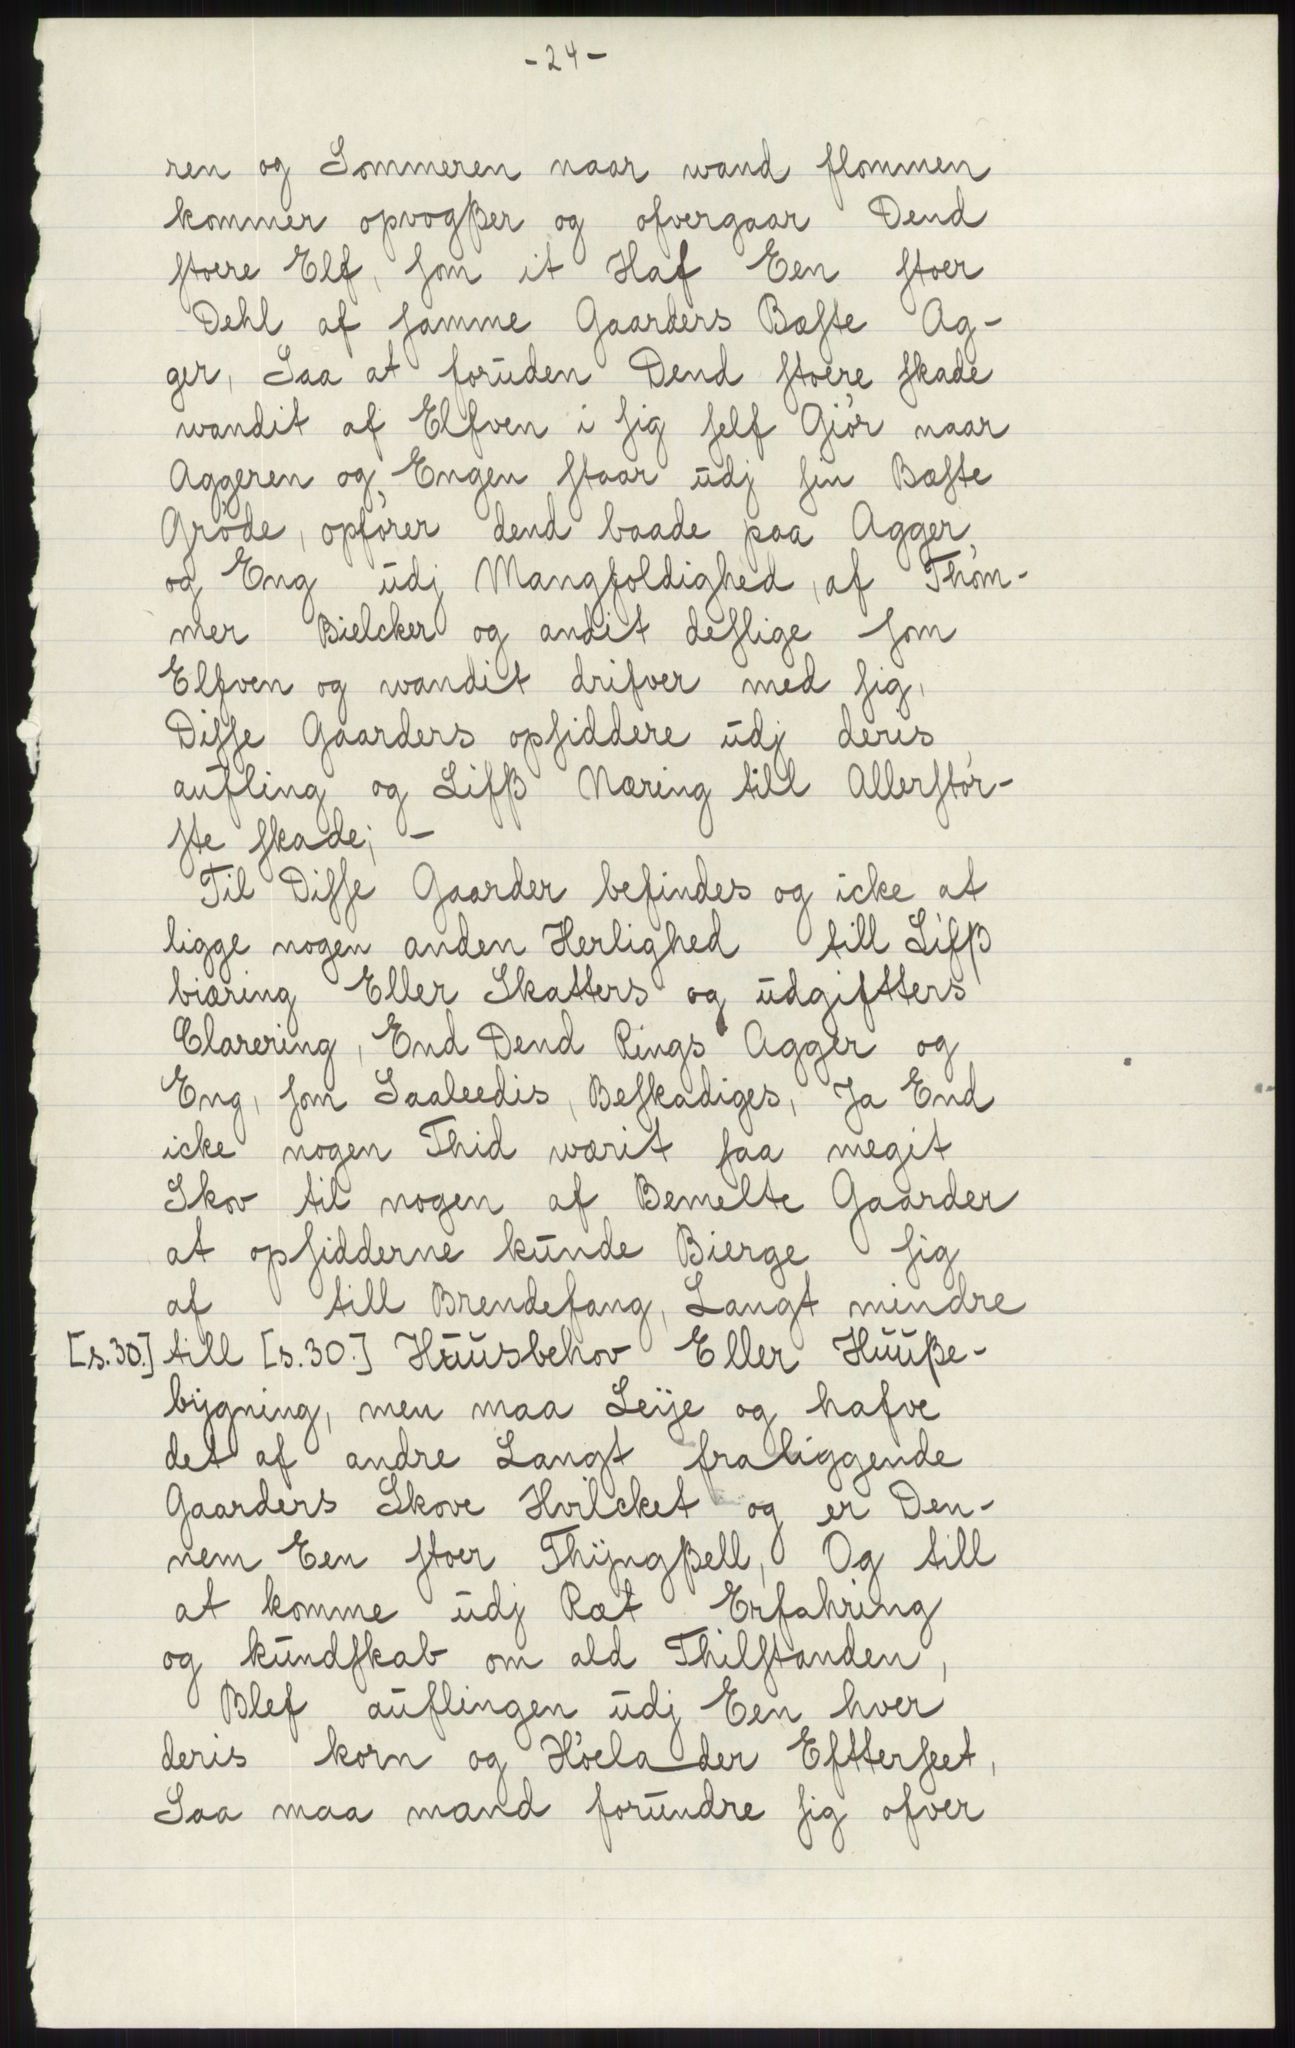 -24-
ren og Sommeren naar wand flommen
kommer opvogßer og ofvergaar Dend
stoere Elf, som it Haf Een stoer
Dehl af samme Gaarders Bæste Ag-
ger, Saa at foruden Dend stoere skade
wandit af Elfven i sig self Giór naar
Aggeren og Engen staar udj sin Bæste
Gróde, opfórer dend baade paa Agger
og Eng udj Mangfoldighed, af Thóm-
mer Bielcker og andit deslige som
Elfven og wandit drifver med sig,
Disse Gaarders opsiddere udj deris
aufling og Lifß Næring till Allerstór-
ste skade; -
Til Disse Gaarder befindes og icke at
ligge nogen anden Herlighed till Lifß
biæring Eller Skatters og udgiftters
Clarering, End Dend Rings Agger og
Eng, som Saaleedis, Beskadiges, Ja End
icke nogen Thid wærit saa megit
Skov til nogen af Bemelte Gaarder
at opsidderne kunde Bierge sig
af till Brendefang, Langt mindre
[s.30.] till [s.30.] Huusbehov Eller Huuße-
bygning, men maa Leije og hafve
det af andre Langt fraliggende
Gaarders Skove Hvilcket og er Den-
nem Een stoer Thÿngßell, Og till
at komme udj Ræt Erfahring
og kundskab om ald Thilstanden,
Blef auflingen udj Een hver
deris korn og Hóela der Eftterseet,
Saa maa mand forundre sig ofver